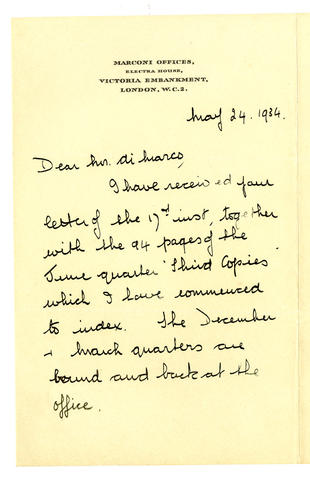 MARCONI OFFICES,
ELECTRA HOUSE,
VICTORIA EMBANKMENT,
LONDON, W.C.2.
May 24. 1934.
Dear Mr. di Marco,
I have received your
letter of the 17th inst, together
with the 94 pages of the
June quarter "Third Copies"
which I have commenced
to index. The December
+ March quarters are
bound and back at the
office.